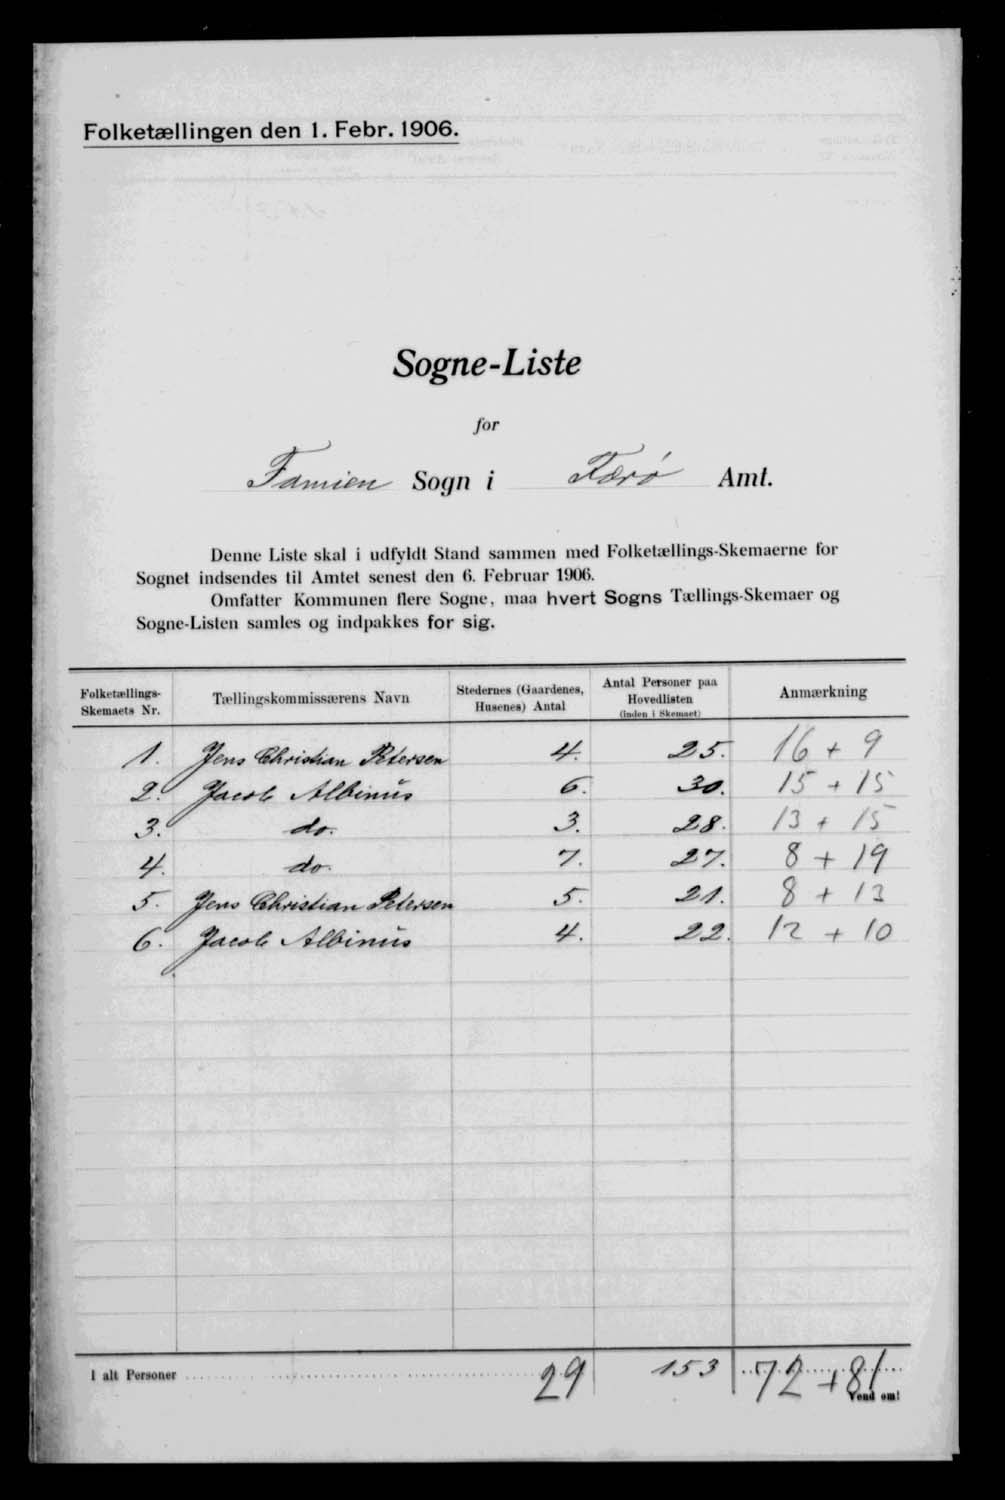 Folketællingen den 1. Febr. 1906.
Sogne-Liste
for
Famien Sogn i Færø Amt.
Denne Liste skal i udfyldt Stand sammen med Folketællings-Skemaerne for
Sognet indsendes til Amtet senest den 6. Februar 1906.
Omfatter Kommunen flere Sogne, maa hvert Sogns Tællings-Skemaer og
Sogne-Listen samles og indpakkes for sig.
Folketællings-Skemaets Nr. Tællingskommissærens Navn Stedernes (Gaardenes, Husenes) Antal Antal Personer paa Hovedlisten (inden i Skemaet) Anmærkning
1. Jens Christian Petersen 4. 25. 16 + 9
2. Jacob Albinus 6. 30. 15 + 15
3. do. 3. 28. 13 + 15
4. do. 7. 27. 8 + 19
5. Jens Christian Petersen 5. 21. 8 + 13
6. Jacob Albinus 4. 22. 12 + 10
I alt Personer 29 153 72 + 81
Vend om!